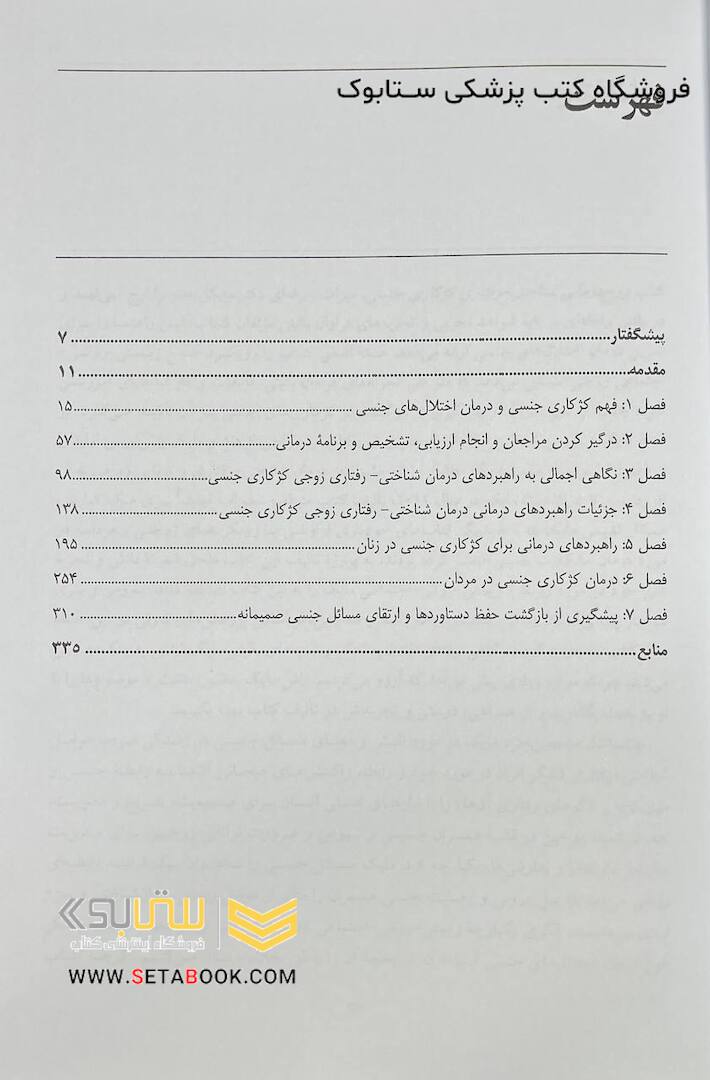 فروشگاه کتب پزشکی ستابوک
فهرست
پیشگفتار ........ ۷
مقدمه ........ ۱۱
فصل ۱: فهم کژکاری جنسی و درمان اختلال‌های جنسی ........ ۱۵
فصل ۲: درگیر کردن مراجعان و انجام ارزیابی، تشخیص و برنامهٔ درمانی ........ ۵۷
فصل ۳: نگاهی اجمالی به راهبردهای درمان شناختی- رفتاری زوجی کژکاری جنسی ........ ۹۸
فصل ۴: جزئیات راهبردهای درمانی درمان شناختی- رفتاری زوجی کژکاری جنسی ........ ۱۳۸
فصل ۵: راهبردهای درمانی برای کژکاری جنسی در زنان ........ ۱۹۵
فصل ۶: درمان کژکاری جنسی در مردان ........ ۲۵۴
فصل ۷: پیشگیری از بازگشت حفظ دستاوردها و ارتقای مسائل جنسی صمیمانه ........ ۳۱۰
منابع ........ ۳۳۵
ستابوک
فروشگاه اینترنتی کتاب
WWW.SETABOOK.COM